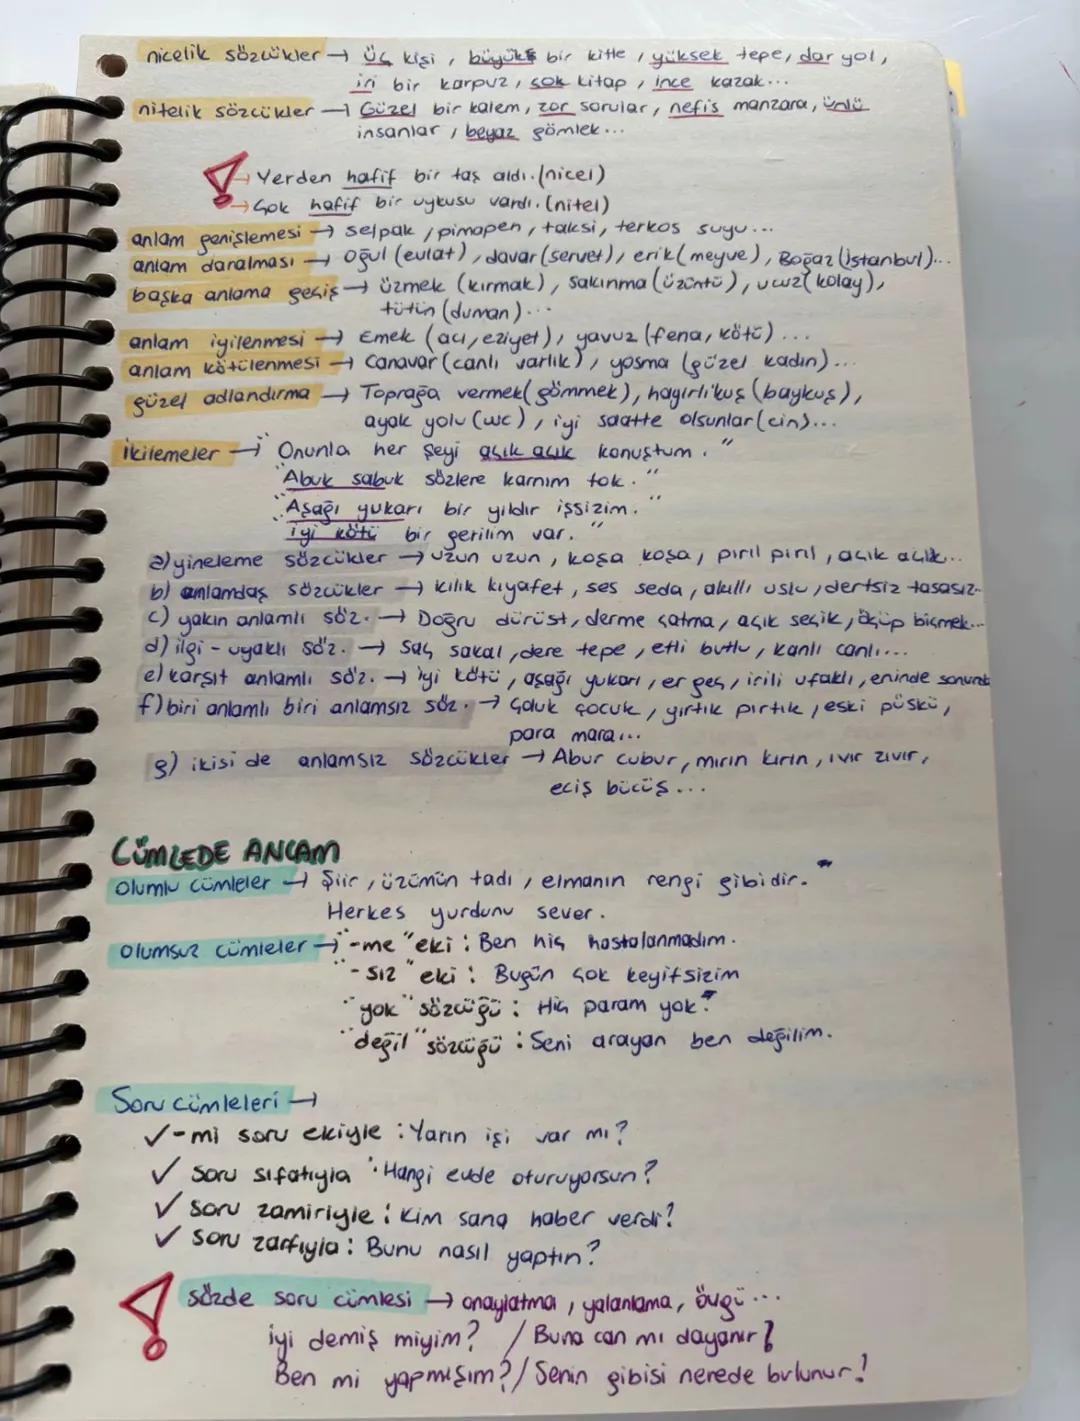 nicelik sözcükler → üç kişi, büyük bir kitle, yüksek tepe, dar yol,
iri bir karpuz, çok kitap, ince kazak...
nitelik sözcükler → Güzel bir kalem, zor sorular, nefis manzara, ünlü
insanlar, beyaz gömlek...
→ Yerden hafif bir taş aldı. (nicel)
→ Çok hafif bir uykusu vardı. (nitel)
anlam genişlemesi → selpak, pimapen, taksi, terkos suyu...
anlam daralması → oğul (evlat), davar (servet), erik (meyve), Boğaz (istanbul)...
başka anlama geçiş → üzmek (kırmak), sakınma (üzüntü), ucuz (kolay),
tütün (duman)...
anlam iyilenmesi → Emek (acı, eziyet), yavuz (fena, kötü)...
anlam kötülenmesi → Canavar (canlı varlık), yosma (güzel kadın)...
güzel adlandırma → Toprağa vermek (gömmek), hayırlı kuş (baykuş),
ayak yolu (wc), iyi saatte olsunlar (cin)...
ikilemeler → "Onunla her şeyi açık açık konuştum."
"Abuk sabuk sözlere karnım tok."
"Aşağı yukarı bir yıldır işsizim."
"iyi kötü bir gerilim var."
a) yineleme sözcükler → uzun uzun, koşa koşa, pırıl pırıl, açık açık...
b) anlamdaş sözcükler → kılık kıyafet, ses seda, akıllı uslu, dertsiz tasasız..
c) yakın anlamlı söz. → Doğru dürüst, derme çatma, açık seçik, ölçüp biçmek...
d) ilgi - uyaklı söz. → Saç sakal, dere tepe, etli butlu, kanlı canlı...
e) karşıt anlamlı söz. → iyi kötü, aşağı yukarı, er geç, irili ufaklı, eninde sonunda
f) biri anlamlı biri anlamsız söz. → Çoluk çocuk, yırtık pırtık, eski püskü,
para mara...
g) ikisi de anlamsız sözcükler → Abur cubur, mırın kırın, ıvır zıvır,
eciş bücüş...
CÜMLEDE ANLAM
olumlu cümleler → Şiir, üzümün tadı, elmanın rengi gibidir.
Herkes yurdunu sever.
olumsuz cümleler → "-me" eki : Ben hiç hastalanmadım.
"-sız" eki : Bugün çok keyifsizim
"yok" sözcüğü : Hiç param yok.
"değil" sözcüğü : Seni arayan ben değilim.
Soru cümleleri →
✓ -mi soru ekiyle : Yarın işi var mı?
✓ soru sıfatıyla : Hangi evde oturuyorsun?
✓ soru zamiriyle : Kim sana haber verdi?
✓ soru zarfıyla : Bunu nasıl yaptın?
sözde soru cümlesi → onaylatma, yalanlama, övgü...
iyi demiş miyim? / Buna can mı dayanır?
Ben mi yapmışım? / Senin gibisi nerede bulunur!